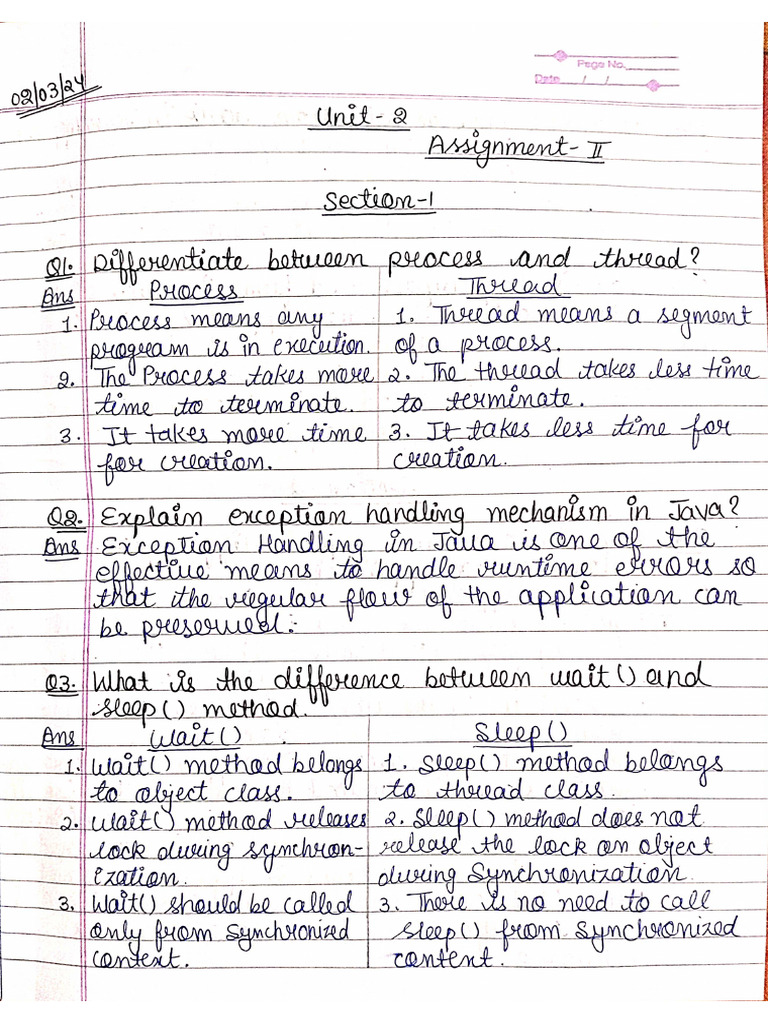 Page No.
Date / /
02/03/24
Unit-2
Assignment-II
Section-1
Q1. Differentiate between process and thread?
Ans Process Thread
1. Process means any 1. Thread means a segment
program is in execution. of a process.
2. The Process takes more 2. The thread takes less time
time to terminate. to terminate.
3. It takes more time 3. It takes less time for
for creation. creation.
Q2. Explain exception handling mechanism in Java?
Ans Exception Handling in Java is one of the
effective means to handle runtime errors so
that the regular flow of the application can
be preserved.
Q3. What is the difference between wait() and
sleep() method.
Ans Wait() Sleep()
1. Wait() method belongs 1. Sleep() method belongs
to object class. to thread class.
2. Wait() method releases 2. Sleep() method does not
lock during synchron- release the lock on object
ization. during Synchronization.
3. Wait() should be called 3. There is no need to call
only from synchronized sleep() from synchronized
context. context.